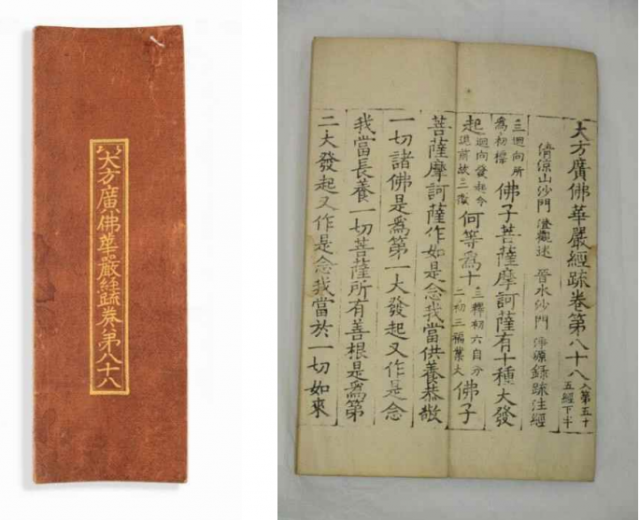 大方廣佛華嚴經疏卷第八十八
大方廣佛華嚴經䟽卷第八十八
入第五十五經下半
清涼山沙門 澄觀述 晉水沙門 淨源錄疏注經
三迴向所爲初標 佛子菩薩摩訶薩有十種大發
起 何等爲十 佛子
菩薩摩訶薩作如是念我當供養恭敬
一切諸佛是爲第一大發起又作是念
我當長養一切菩薩所有善根是爲第
二大發起又作是念我當於一切如來